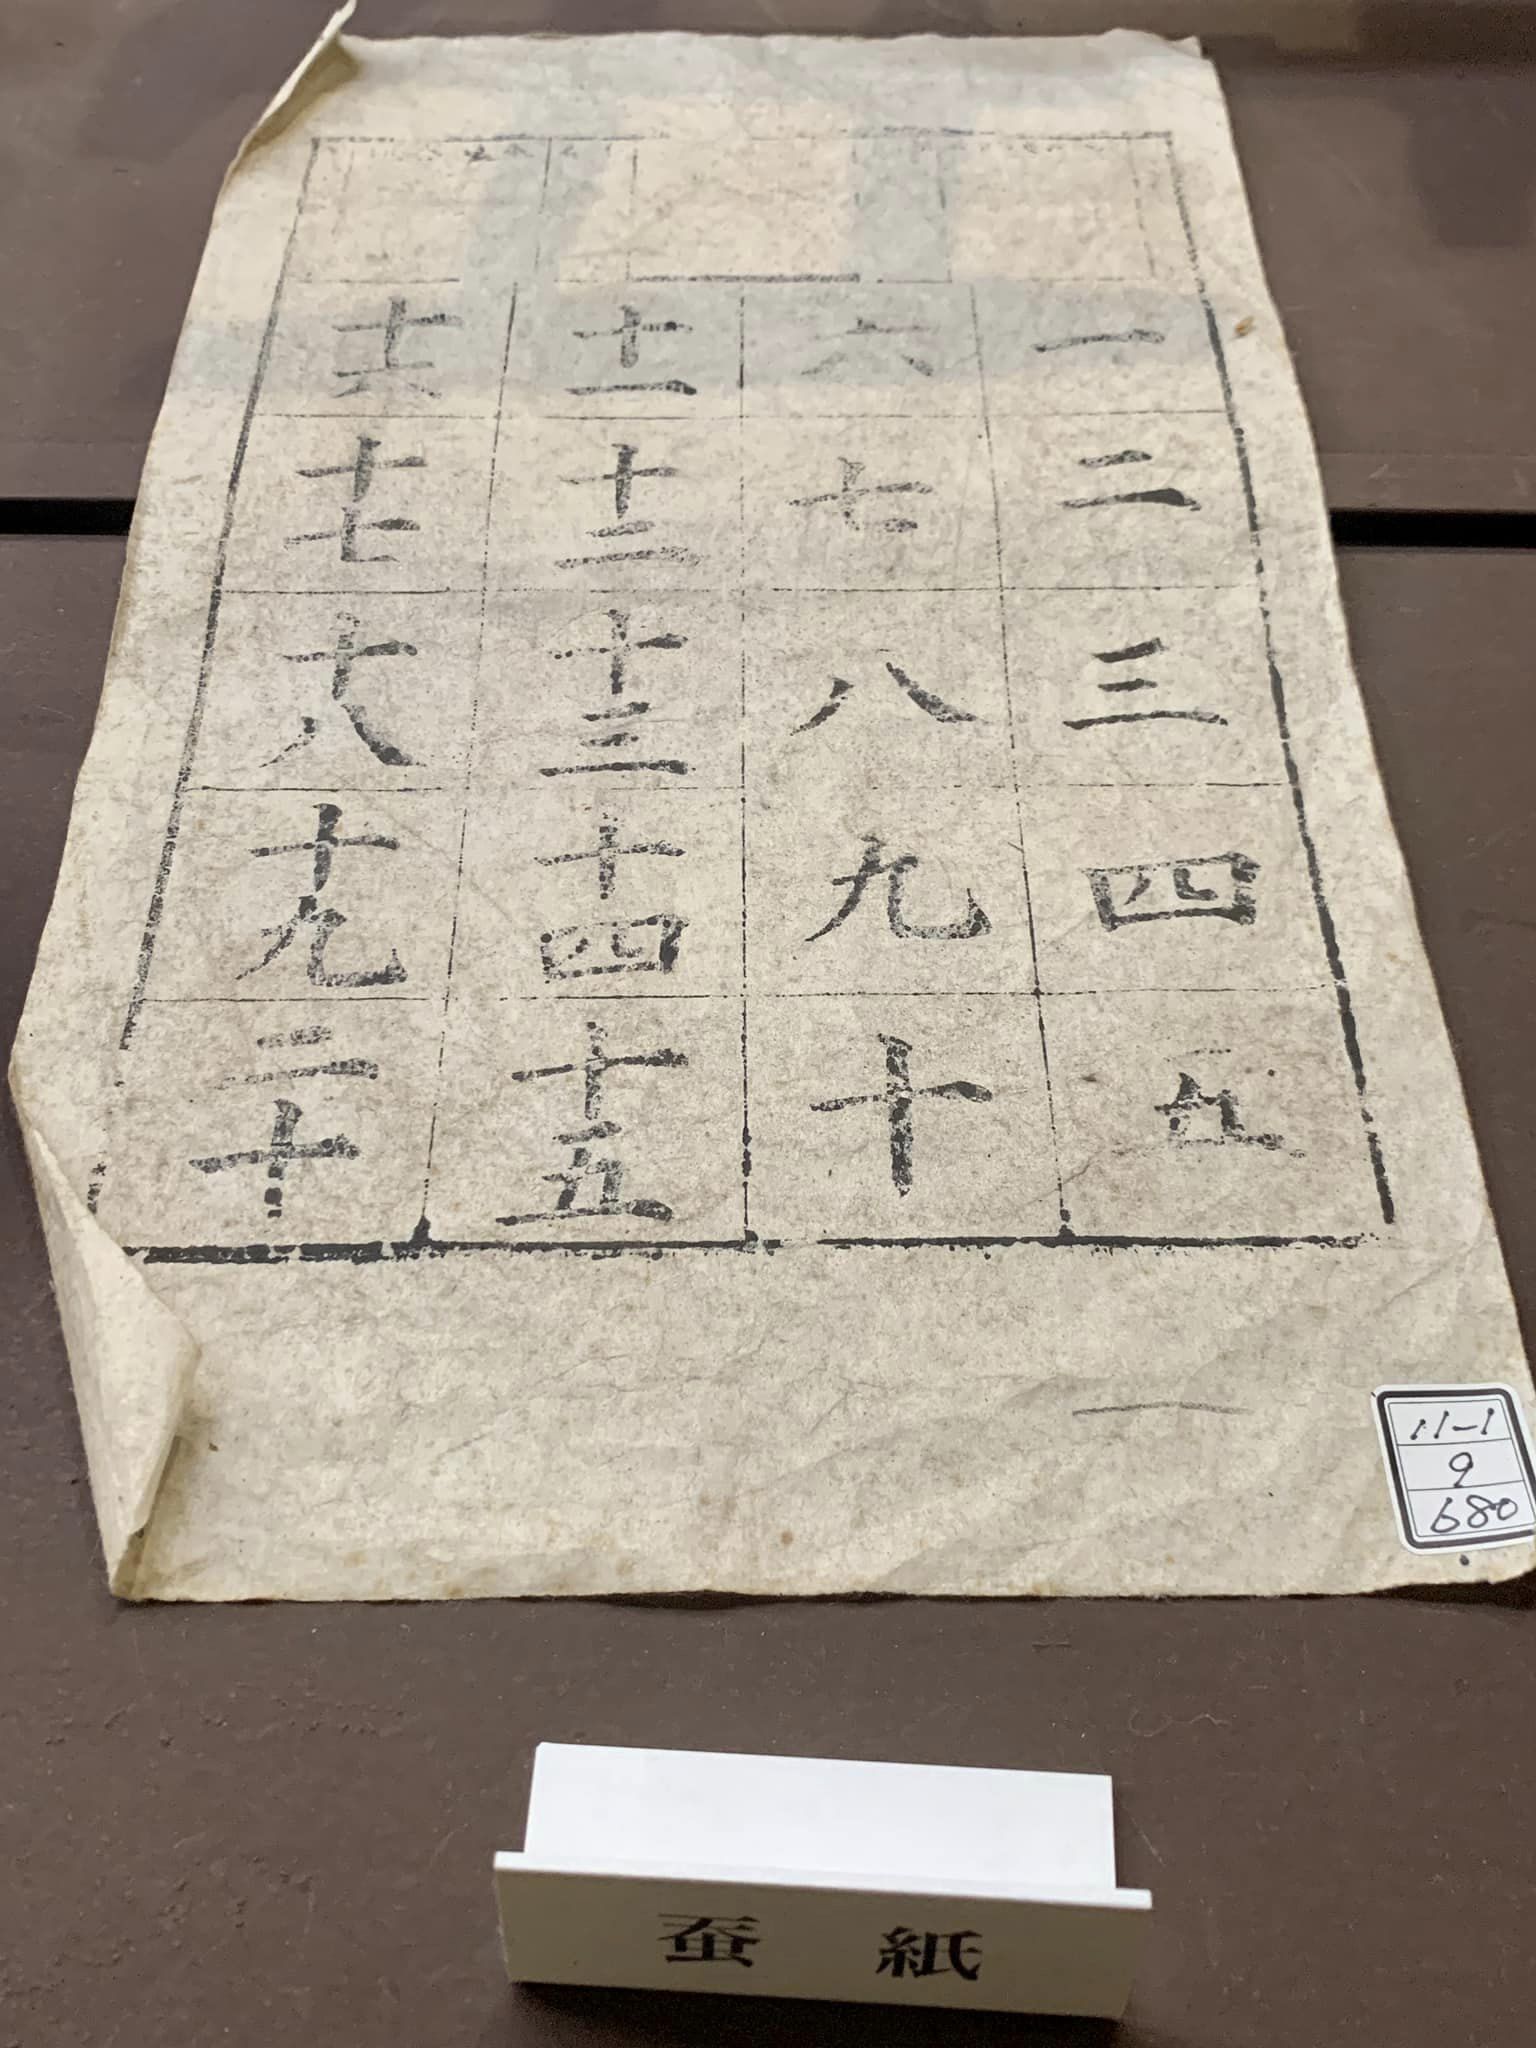 一
二
三
四
五
六
七
八
九
十
十一
十二
十三
十四
十五
十六
十七
十八
十九
二十
11-1
9
680
蚕紙